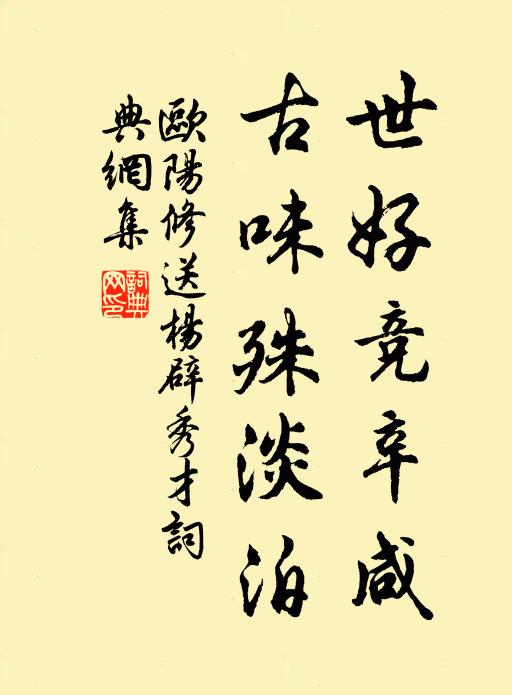 世好竞辛咸
古味殊淡泊
歐陽修送楊辟秀才詞
典網集
詞典
网印